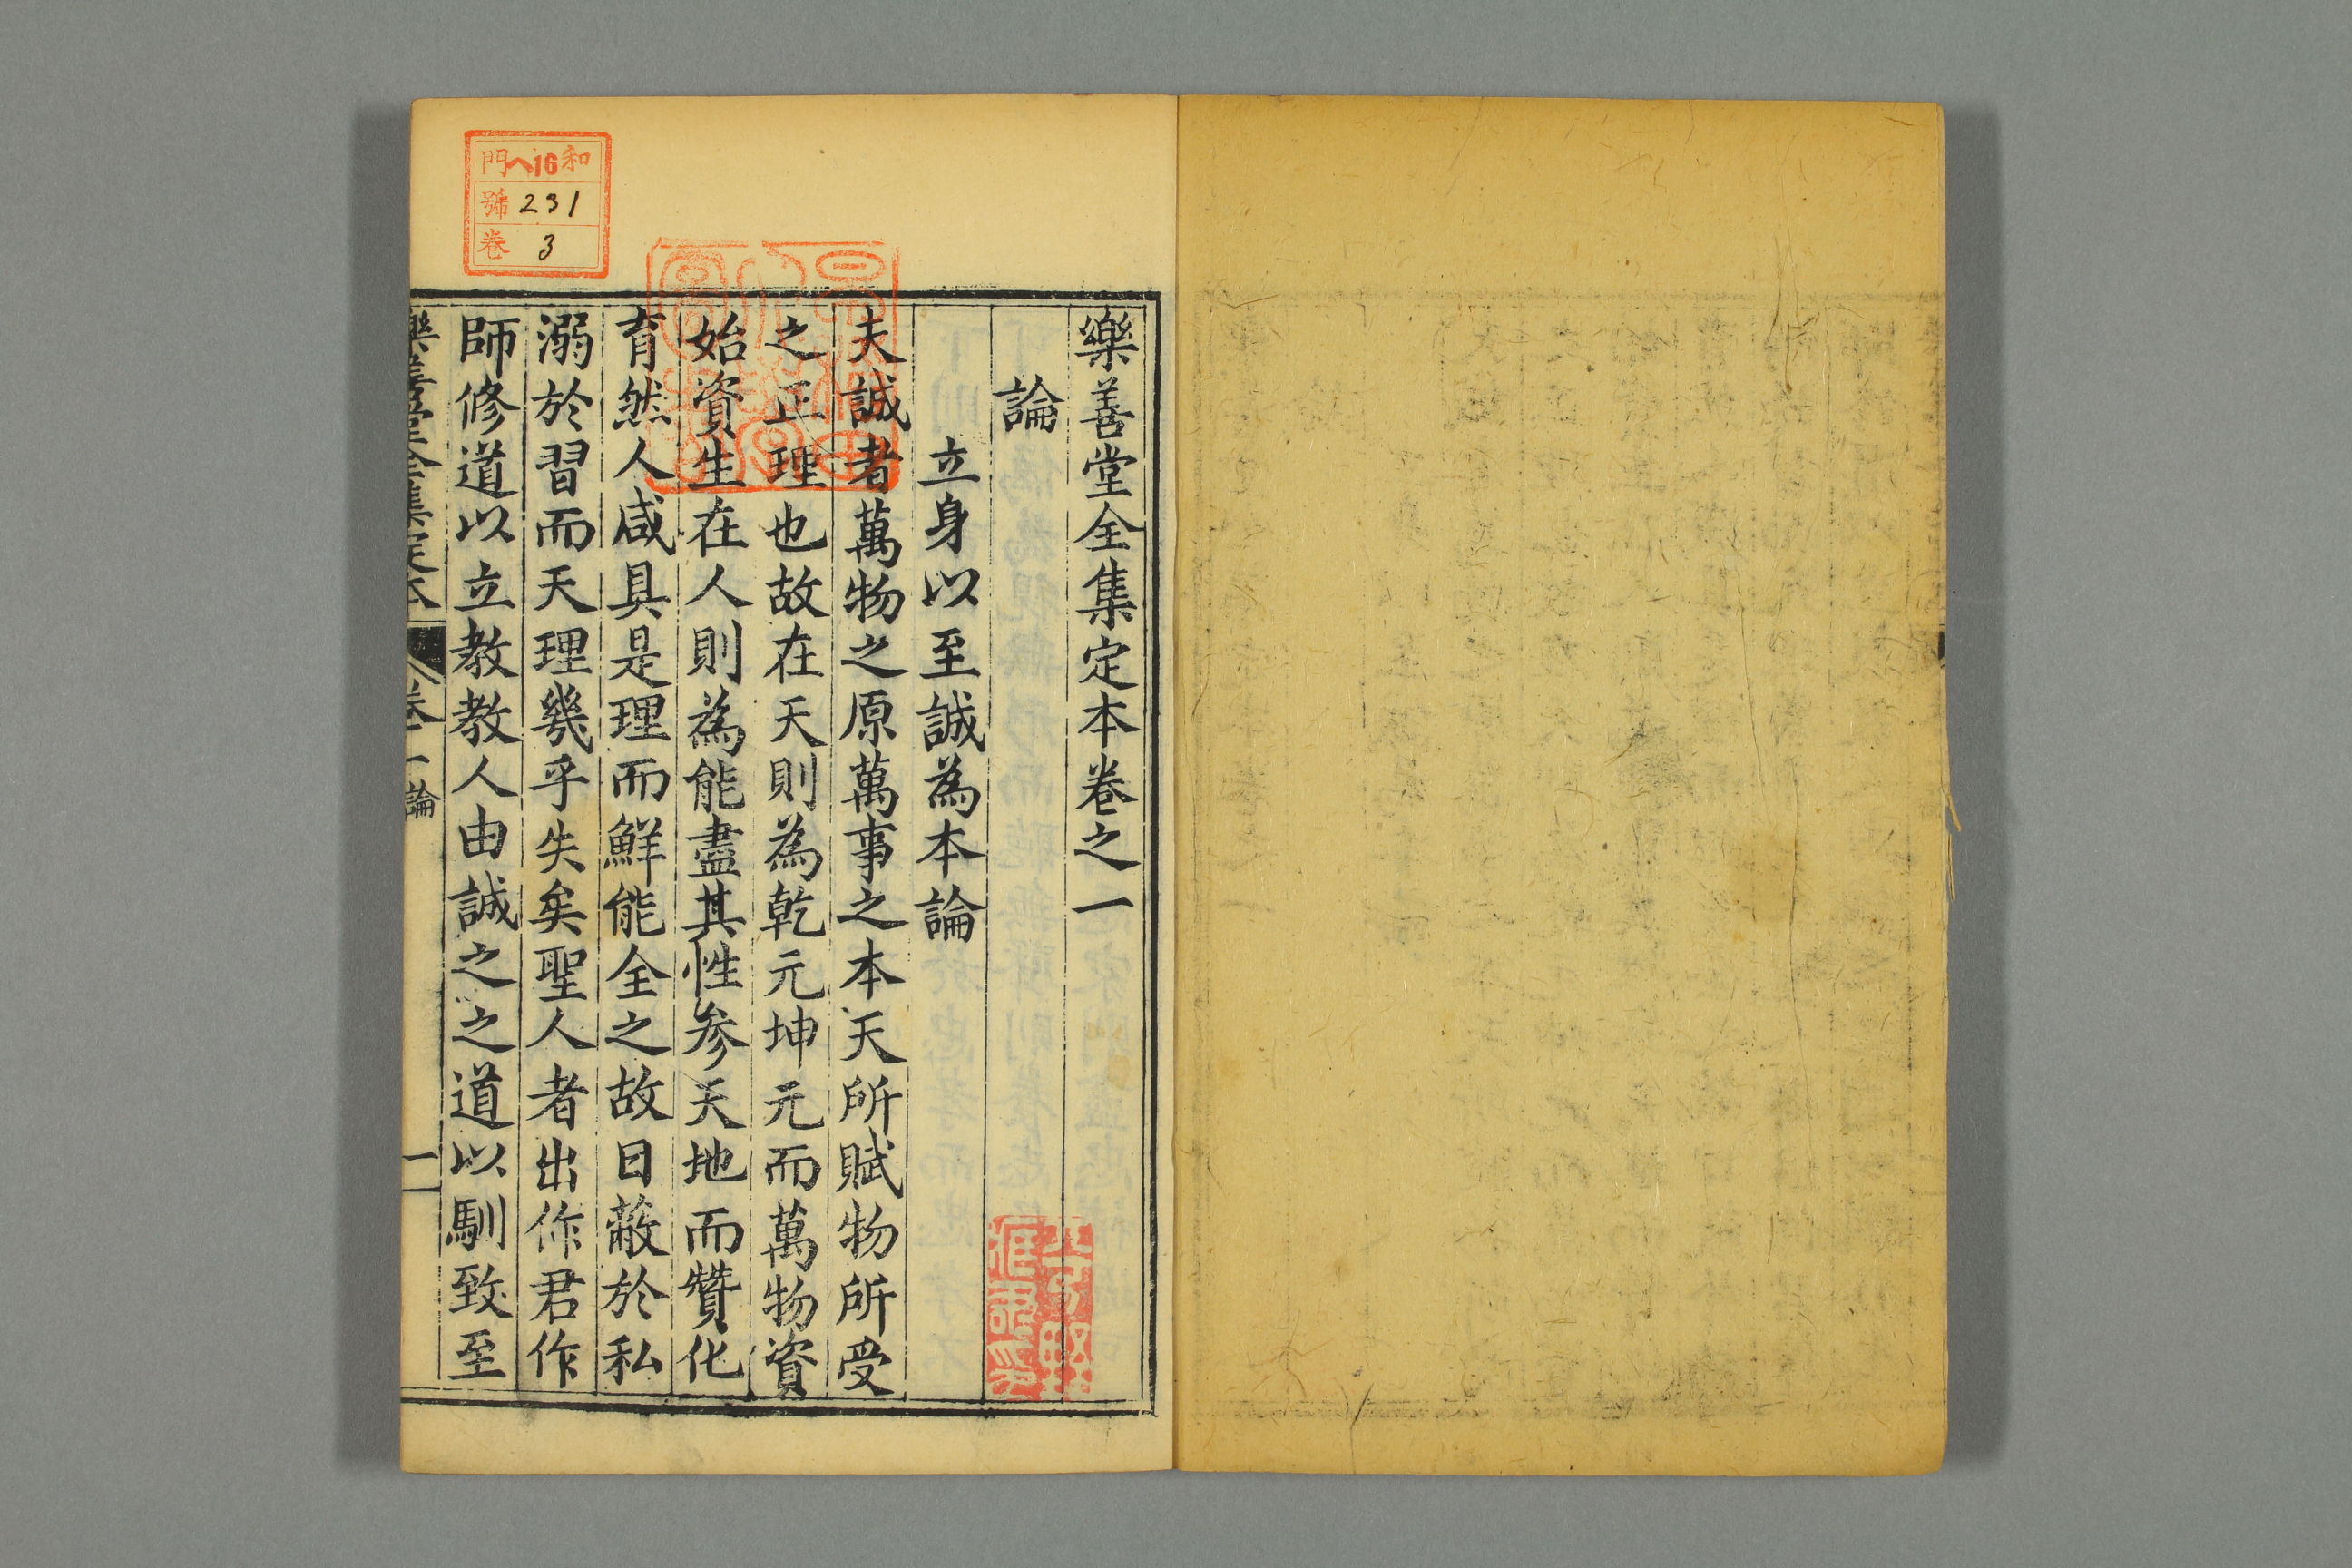 樂善堂全集定本卷之一
論
立身以至誠為本論
夫誠者萬物之原萬事之本天所賦物所受
之正理也故在天則為乾元坤元而萬物資
始資生在人則為能盡其性參天地而贊化
育然人咸具是理而鮮能全之故日蔽於私
溺於習而天理幾乎失矣聖人者出作君作
師修道以立教教人由誠之之道以馴致至
樂善堂全集定本 卷一 論 一
門へ16和
號 231
卷 3